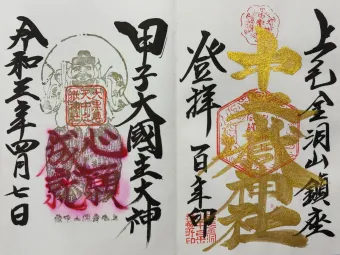 上毛金洞山鎮座
十二嶽神社
登拝 百年印
甲子大國主大神
心願
成就
令和三年四月七日